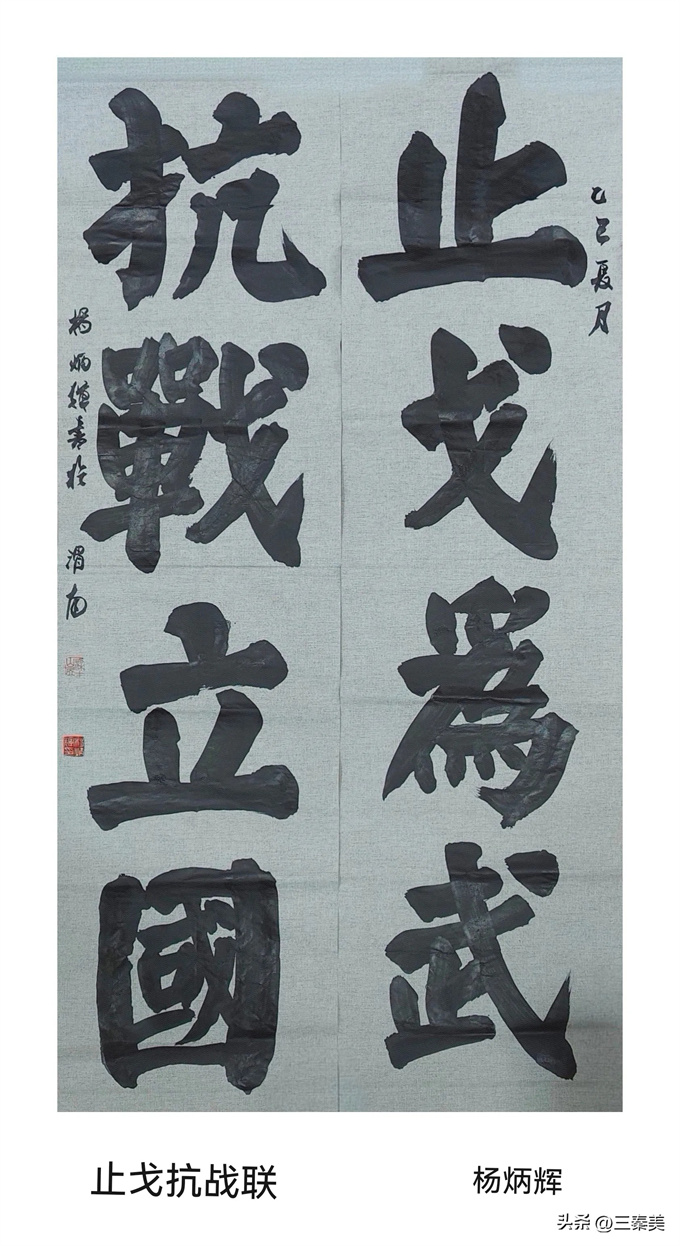 乙巳夏月
止戈為武
抗戰立國
杨炳辉書於渭南
止戈抗战联
杨炳辉
头条 @三秦美